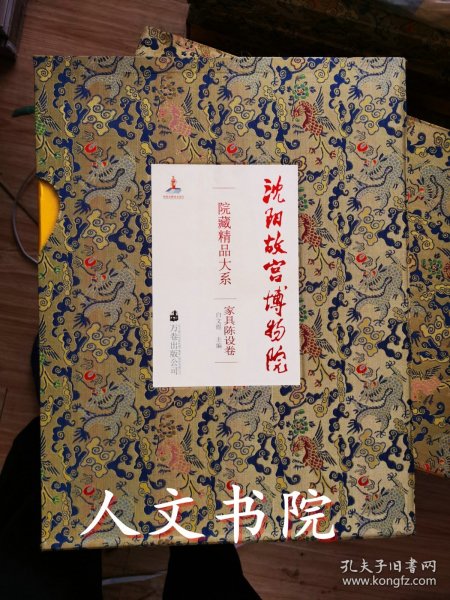 沈阳故宫博物院
院藏精品大系
家具陈设卷
白文煜 主编
万卷出版公司
人文书院
孔夫子旧书网
www.kongfz.com